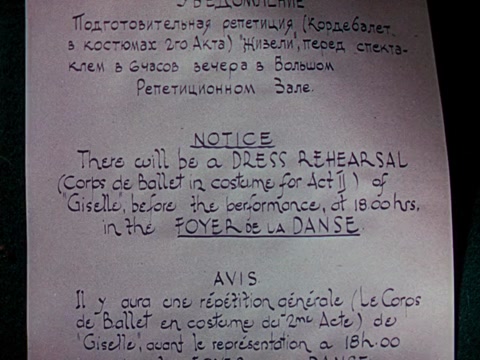 УВЕДОМЛЕНИЕ
Подготовительная репетиция (Кордебалет
в костюмах 2го Акта) "Живели", перед спекта-
клем в 6 часов вечера в Большом
Репетиционном Зале.
NOTICE
There will be a DRESS REHEARSAL
(Corps de Ballet in costume for Act II) of
"Giselle", before the performance, at 18.00 hrs,
in the FOYER de LA DANSE.
AVIS
Il y aura une répétition générale (Le Corps
de Ballet en costume du 2me Acte) de
"Giselle", avant le représentation a 18h.00
FOYER DANSE